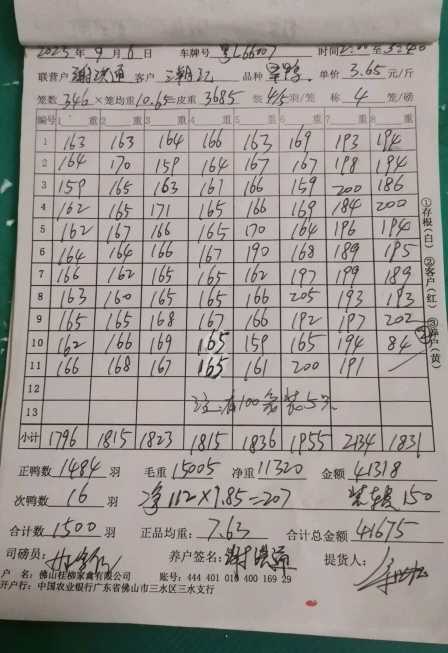 2025年9月6日 车牌号 时间2:00至3:40
联营户 谢洪通 客户 品种 单价 3.65元/斤
笼数346×笼均重10.65=皮重3685 装4/5羽/笼 称4笼/磅
编号 1 重 2 重 3 重 4 重 5 重 6 重 7 重 8 重
1 163 163 164 166 163 169 193 194
2 164 170 159 164 167 167 198 194
3 159 165 163 167 166 159 200 186
4 162 165 171 165 166 169 184 200
5 162 167 166 165 170 164 196 194
6 164 164 166 167 190 168 189 195
7 166 162 165 165 162 197 199 189
8 163 160 165 165 166 205 193 193
9 165 165 168 167 166 192 197 202
10 162 166 169 165 159 165 194 84
11 166 168 167 165 161 200 191
12 注:有100笼装5只
13
小计 1796 1815 1823 1815 1836 1955 2134 1831
①存根(白) ②客户(红) ③养户(黄)
正鸭数1484羽 毛重15005 净重11320 金额41318
次鸭数16羽 净112×1.85=207 装车费150
合计数1500羽 正品均重:7.63 合计总金额41675
司磅员: 养户签名:谢洪通 提货人:
户 名:佛山桂柳家禽有限公司 账号:444 401 010 400 169 29
开户行:中国农业银行广东省佛山市三水区三水支行